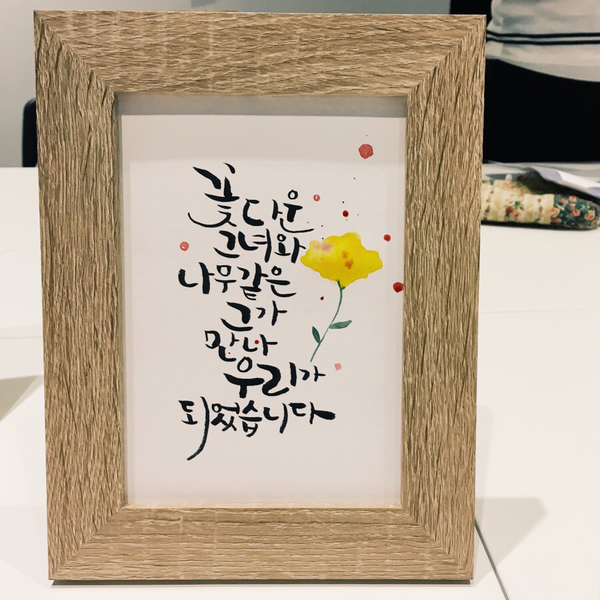 꽃다운
그녀와
나무같은
그가
만나
우리가
되었습니다